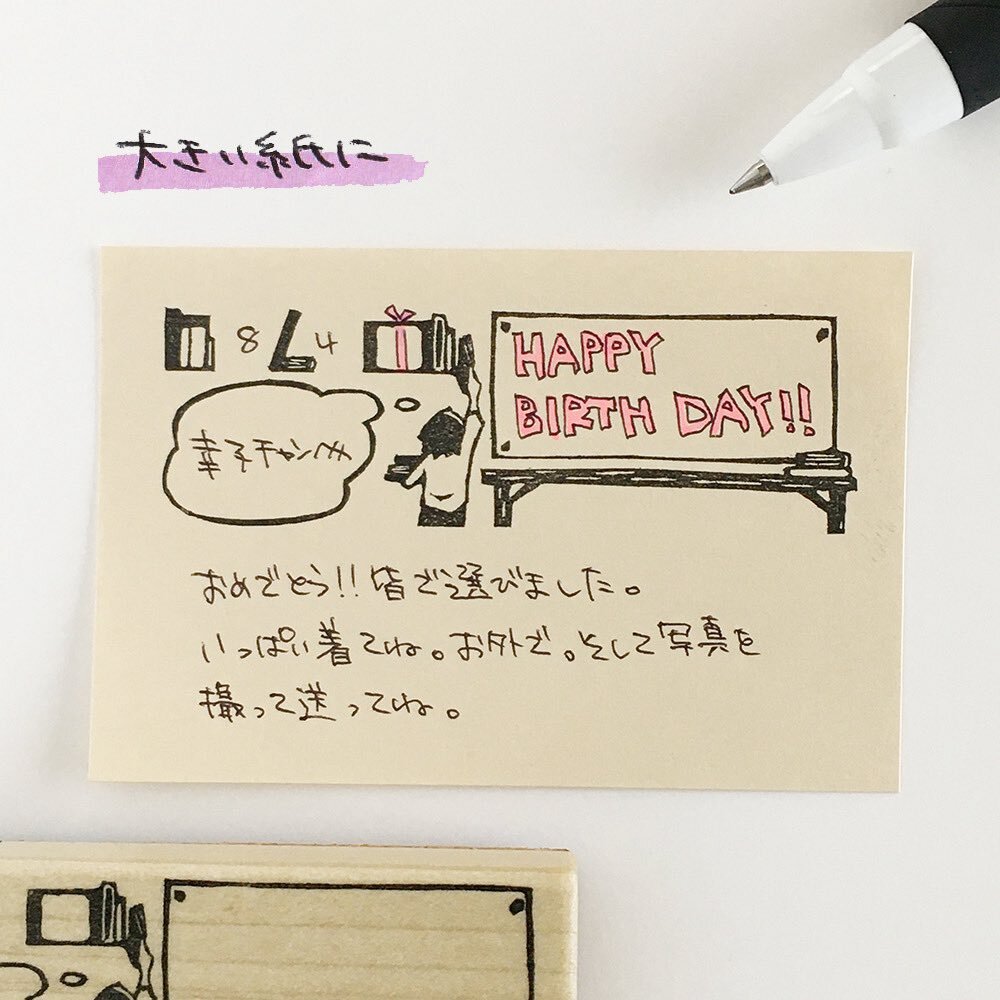 大きい紙に
8 4
HAPPY
BIRTH DAY!!
幸子チャンへ
おめでとう!!皆で選びました。
いっぱい着てね。お外で。そして写真を
撮って送ってね。